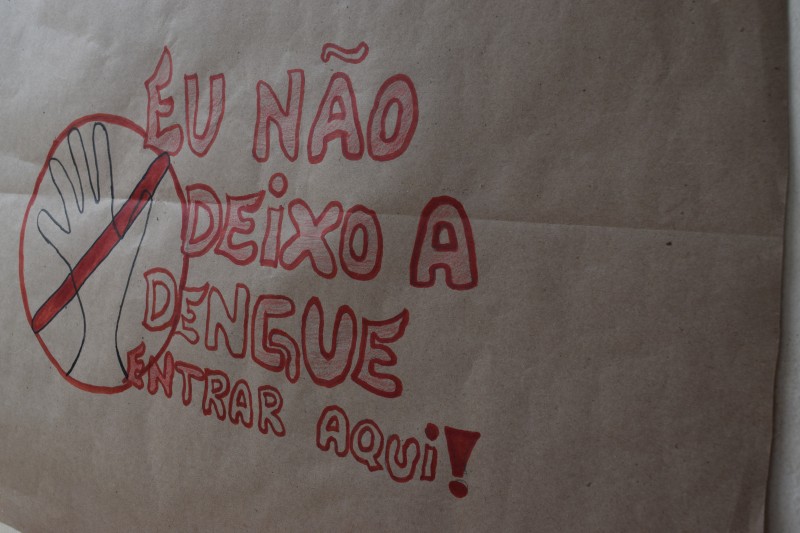 EU NÃO
DEiXO A
DENGUE
ENTRAR AQUi!